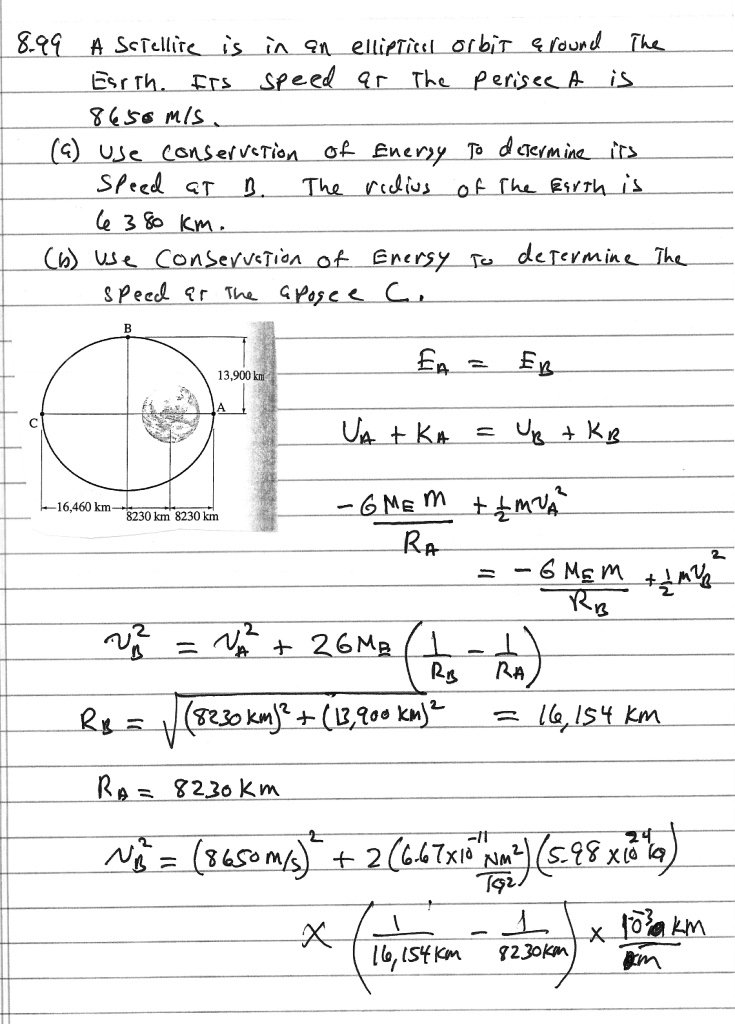 8.99 A Satellite is in an elliptical orbit around The
Earth. Its speed at The perigee A is
8650 m/s.
(a) Use conservation of Energy To determine its
Speed at B. The radius of The Earth is
6380 Km.
(b) Use Conservation of Energy To determine The
speed at The apogee C.
B
13,900 km
A
C
16,460 km
8230 km 8230 km
E_A = E_B
U_A + K_A = U_B + K_B
-G M_E m / R_A + 1/2 m v_A^2
= -G M_E m / R_B + 1/2 m v_B^2
v_B^2 = v_A^2 + 2GM_E (1/R_B - 1/R_A)
R_B = √((8230 km)^2 + (13,900 km)^2) = 16,154 km
R_A = 8230 km
v_B^2 = (8650 m/s)^2 + 2(6.67x10^-11 Nm^2/kg^2)(5.98 x10^24 kg)
x (1/16,154 km - 1/8230 km) x 10^-3 km/m